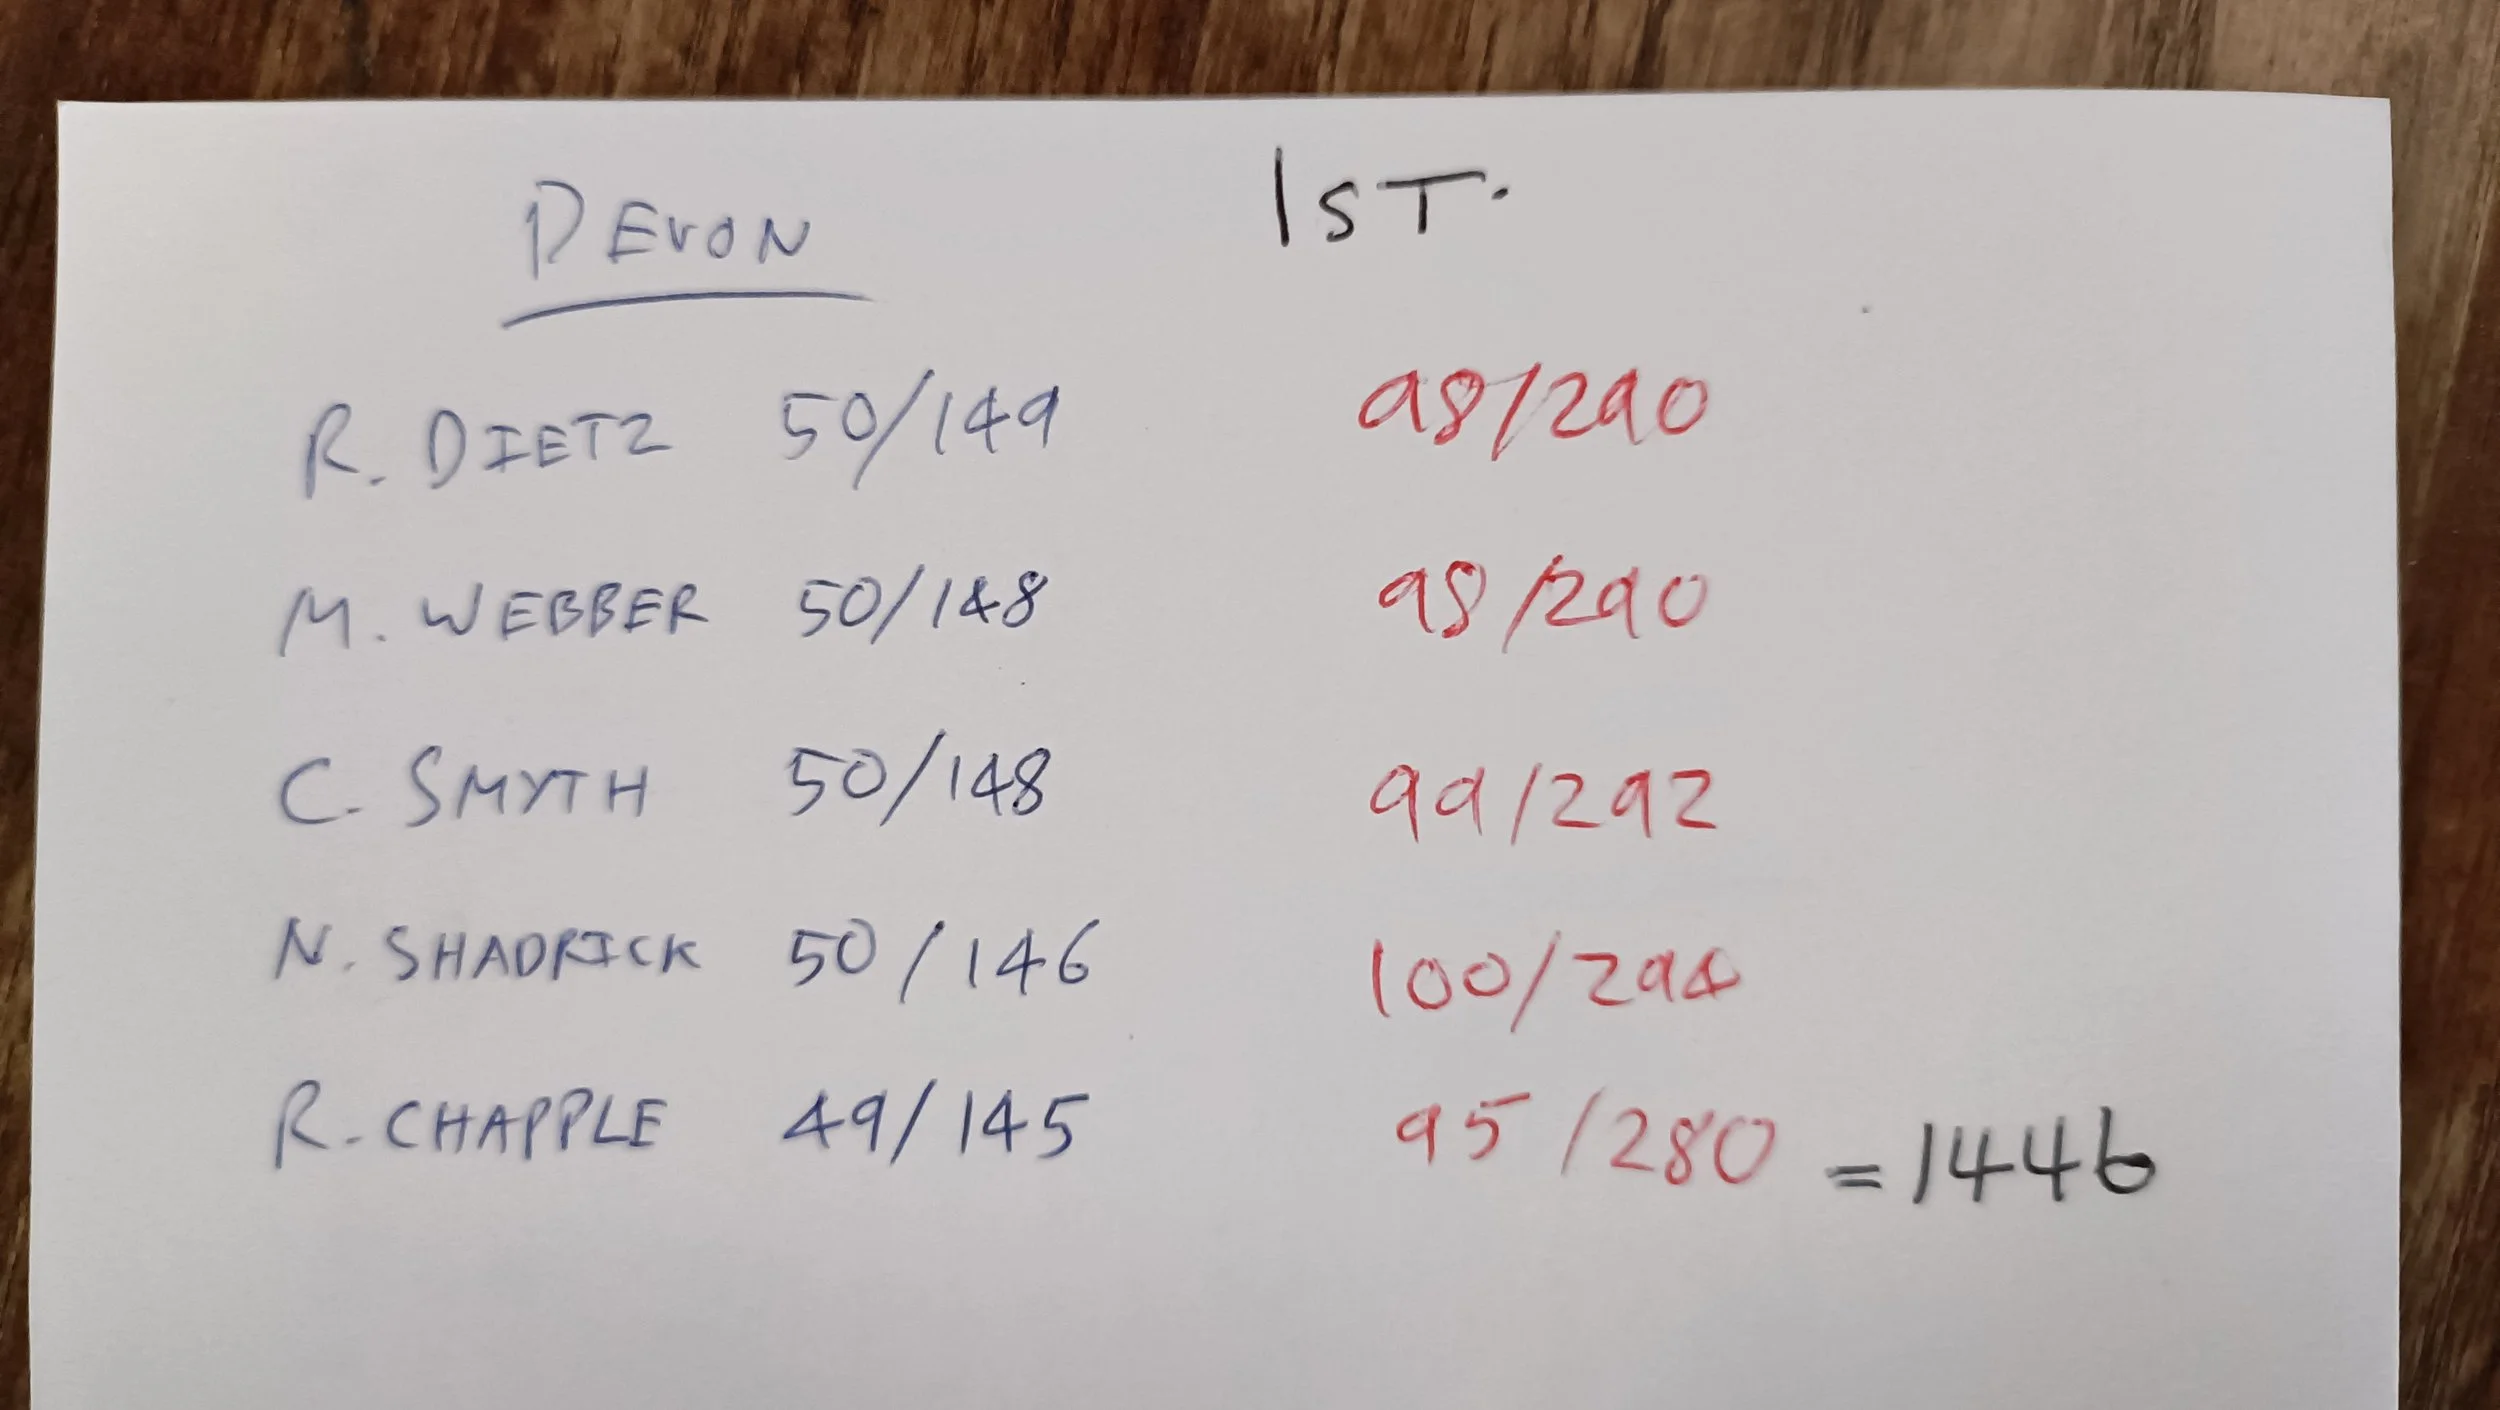 DEVON 1ST.
R. DIETZ 50/149 98/290
M. WEBBER 50/148 98/290
C. SMYTH 50/148 99/292
N. SHADRICK 50/146 100/294
R. CHAPPLE 49/145 95/280 = 1446